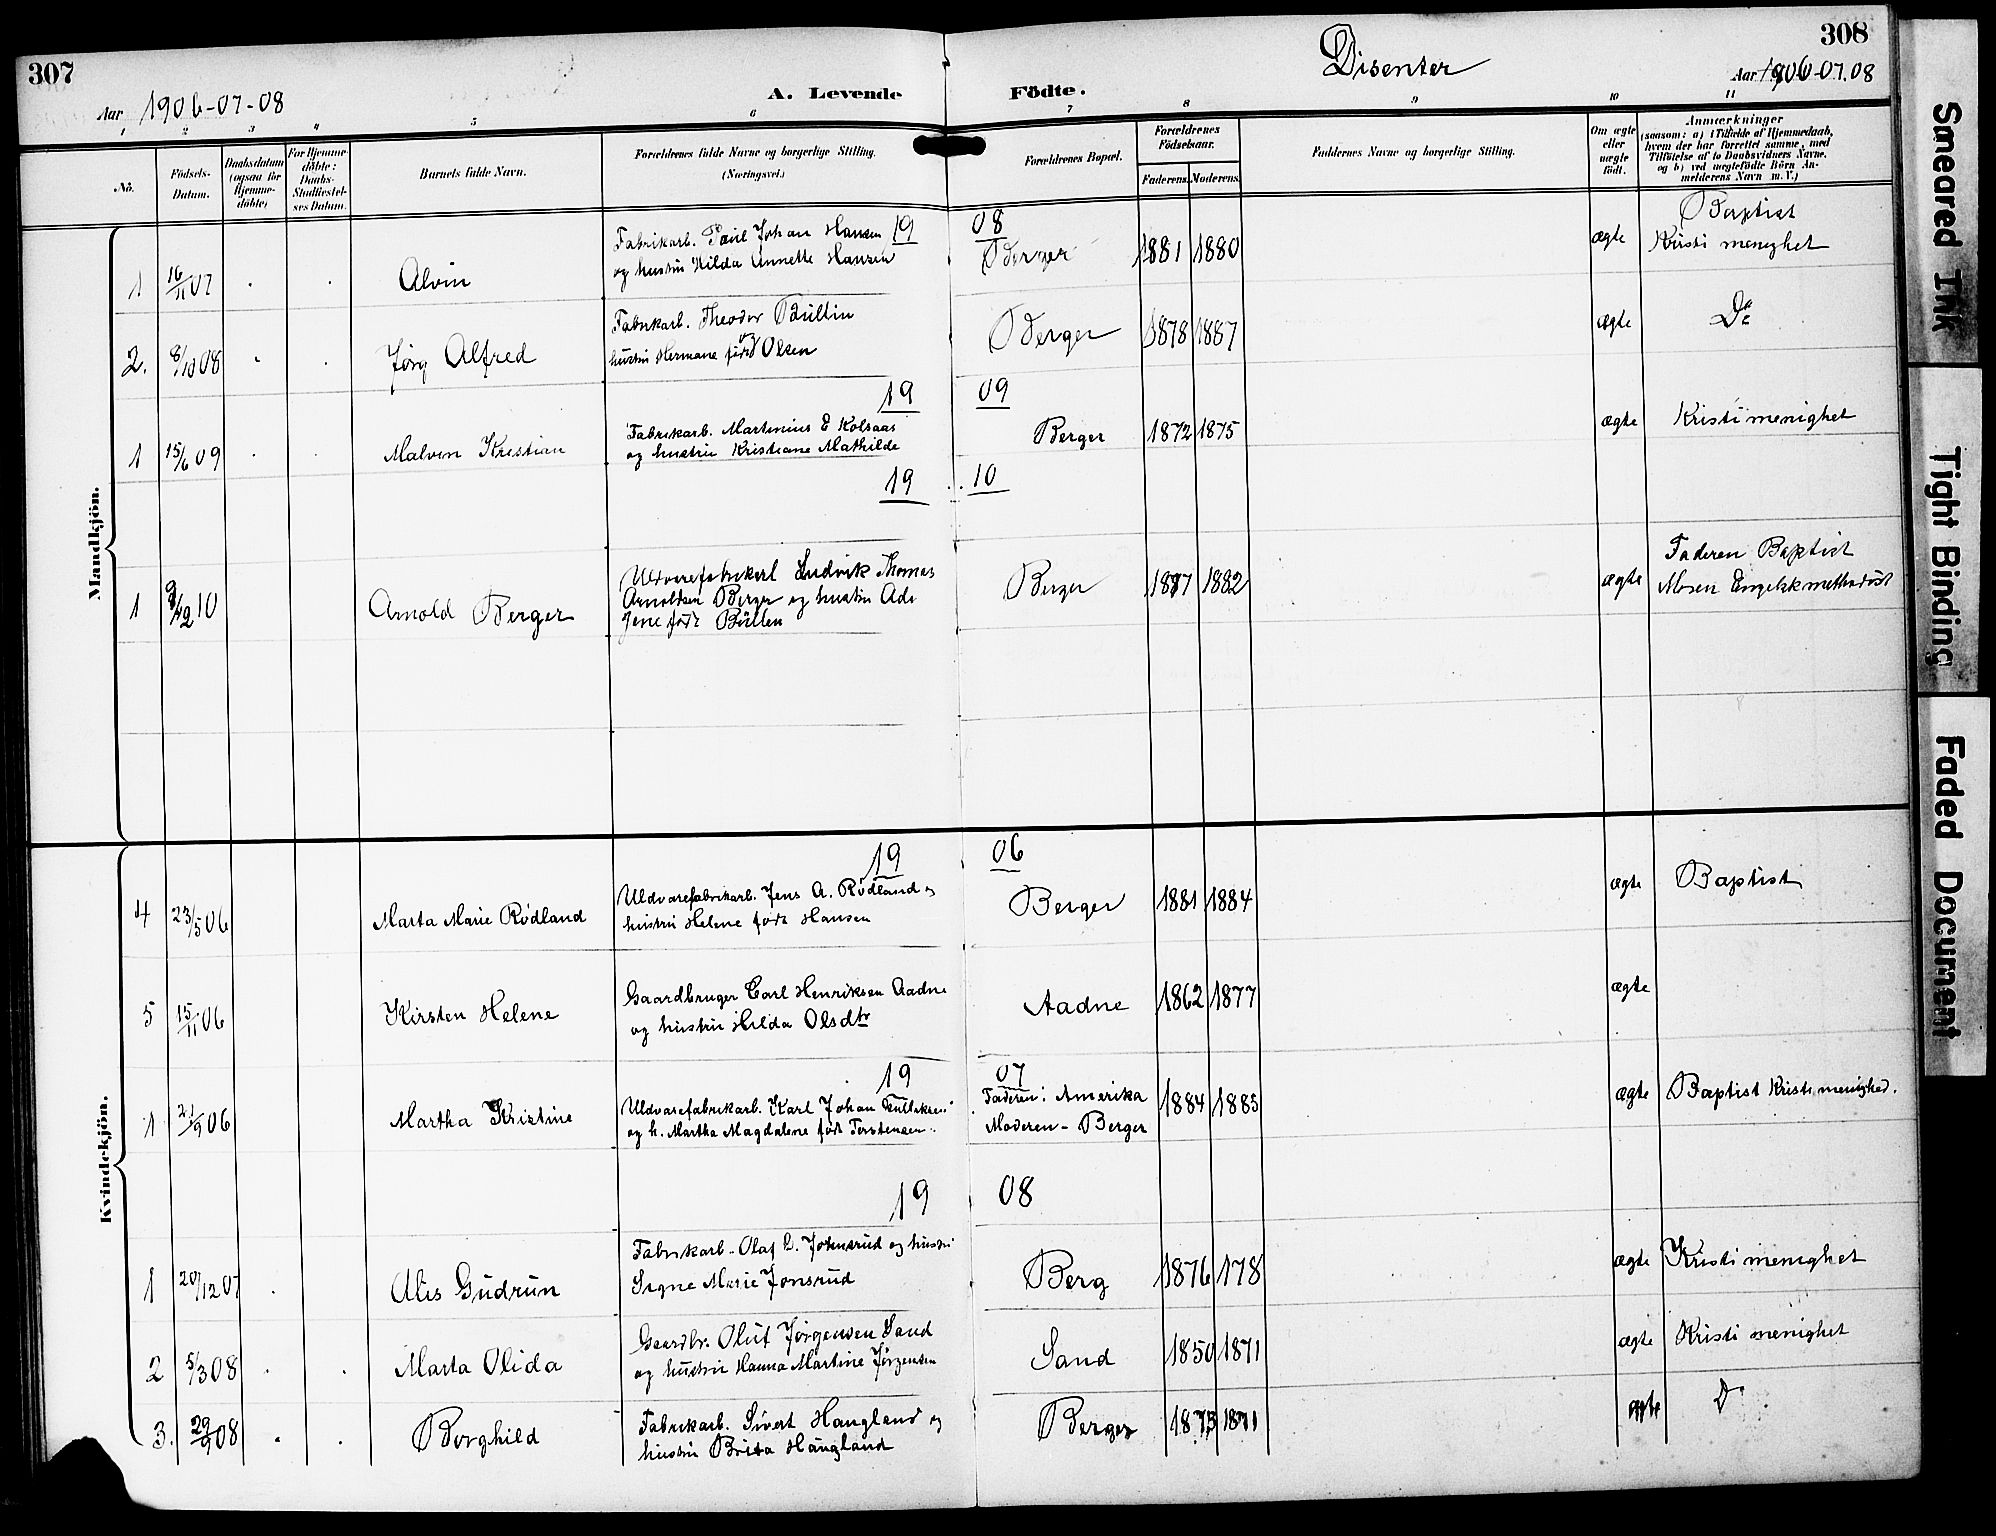 307
308
Disenter
Aar 1906-07-08
A. Levende Födte.
Aar 1906-07.08
1 2 3 4 5 6 7 8 9 10 11
No.
Födsels-Datum.
Daabsdatum (ogsaa for Hjemme-döbte)
For Hjemme-döbte: Daabs-Stadfæstel-ses Datum.
Barnets fulde Navn.
Forældrenes fulde Navne og borgerlige Stilling. (Næringsvei.)
Forældrenes Bopæl.
Forældrenes Födselsaar.
Faderens. Moderens.
Faddernes Navne og borgerlige Stilling.
Om ægte eller uægte födt.
Anmærkninger
(saasom: a) i Tilfælde af Hjemmedaab, hvem der har forrettet samme, med Tilföielse af to Daabsvidners Navne, og b) ved uægtefödte Börn An-melderens Navn m. V.)
Mandkjön.
19 08
Fabrikarb. Paul Johan Hansen
og hustru Hilda Annette Hansen
1 16/11 07 Alvin Berger 1881 1880 ægte Baptist
Kristi menighet
Fabrikarb. Theodor Büllin og
hustru Hermane født Olsen
2. 8/10 08 Jørg Alfred Berger 1878 1887 ægte Do
19 09
Fabrikarb. Martinius E Kolsaas
og hustru Kristiane Mathilde
1 15/6 09 Malvin Kristian Berger 1872 1875 ægte Kristi menighet
19 10
Uldvarefabrikarb Ludvik Thomas
Arnoldsen Berger og hustru Ada
Jene født Büllen
1 9/12 10 Arnold Berger Berger 1877 1882 ægte Faderen Baptist
Moren Engelsk methodist
Kvindekjön.
19 06
Uldvarefabrikarb. Jens A. Rødland og
hustru Helene født Hansen
4 23/5 06 Marta Marie Rødland Berger 1881 1884 ægte Baptist
Gaardbruger Carl Henriksen Aadne
og hustru Hilda Olsdtr
5 15/11 06 Kirsten Helene Aadne 1862 1877 ægte
19 07
Uldvarefabrikarb. Karl Johan
og h. Martha Magdalene født Torstensen.
1 21/9 06 Martha Kristine Faderen: Amerika
Moderen - Berger 1884 1885 ægte Baptist Kristi menighed.
19 08
Fabrikarb. Olaf Johnsrud og hustru
Signe Marie Jonsrud
1 20/12 07 Alis Gudrun Berg 1876 178 ægte Kristi menighet
Gaardbr. Oluf Jørgensen Sand
og hustru Hanna Martine Jørgensen
2 5/3 08 Marta Olida Sand 1850 1871 ægte Kristi menighet
Fabrikarb. Sivert Haugland og
hustru Brita Haugland
3. 29/9 08 Borghild Berger 1873 1871 ægte Do
Smeared Ink
Tight Binding
Faded Document